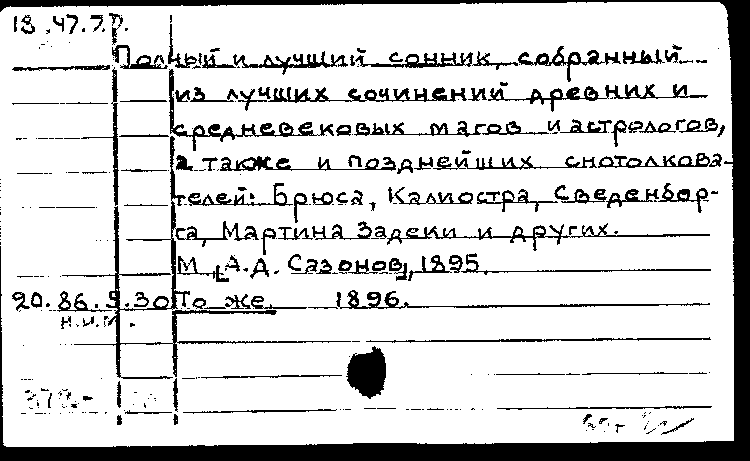 18.47.7.0.
Полный и лучший сонник, собранный
из лучших сочинений древних и
средневековых магов и астрологов,
а также и позднейших снотолкова-
телей: Брюса, Калиостра, Сведенбор-
га, Мартина Задеки и других.
М., [А.Д. Сазонов], 1895.
20.86.9.30 То же. 1896.
н.и.м.